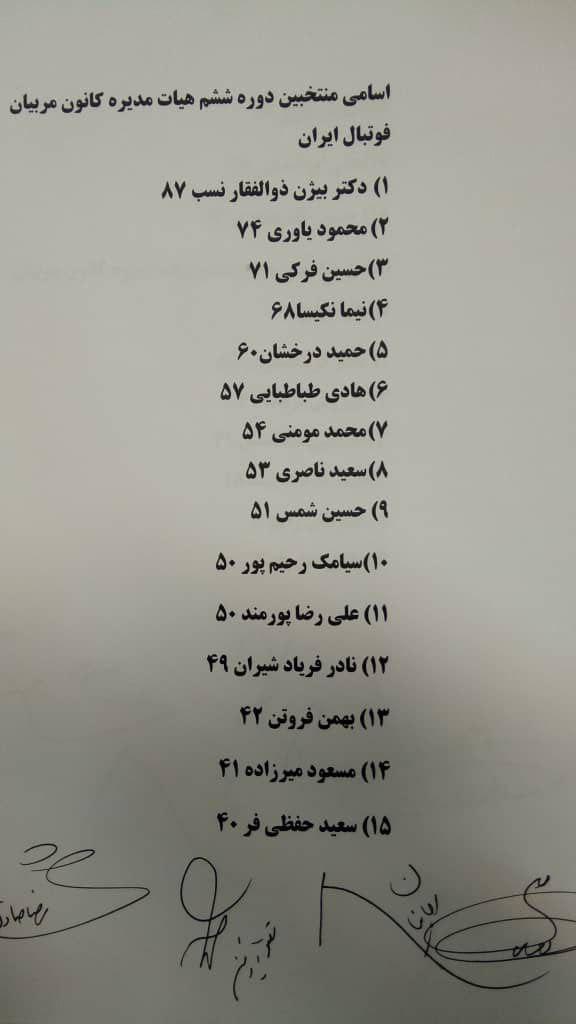 اسامی منتخبین دوره ششم هیات مدیره کانون مربیان
فوتبال ایران
۱) دکتر بیژن ذوالفقار نسب ۸۷
۲)محمود یاوری ۷۴
۳)حسین فرکی ۷۱
۴)نیما نکیسا۶۸
۵)حمید درخشان۶۰
۶)هادی طباطبایی ۵۷
۷)محمد مومنی ۵۴
۸)سعید ناصری ۵۳
۹) حسین شمس ۵۱
۱۰)سیامک رحیم پور ۵۰
۱۱) علی رضا پورمند ۵۰
۱۲) نادر فریاد شیران ۴۹
۱۳) بهمن فروتن ۴۲
۱۴) مسعود میرزاده ۴۱
۱۵) سعید حفظی فر ۴۰